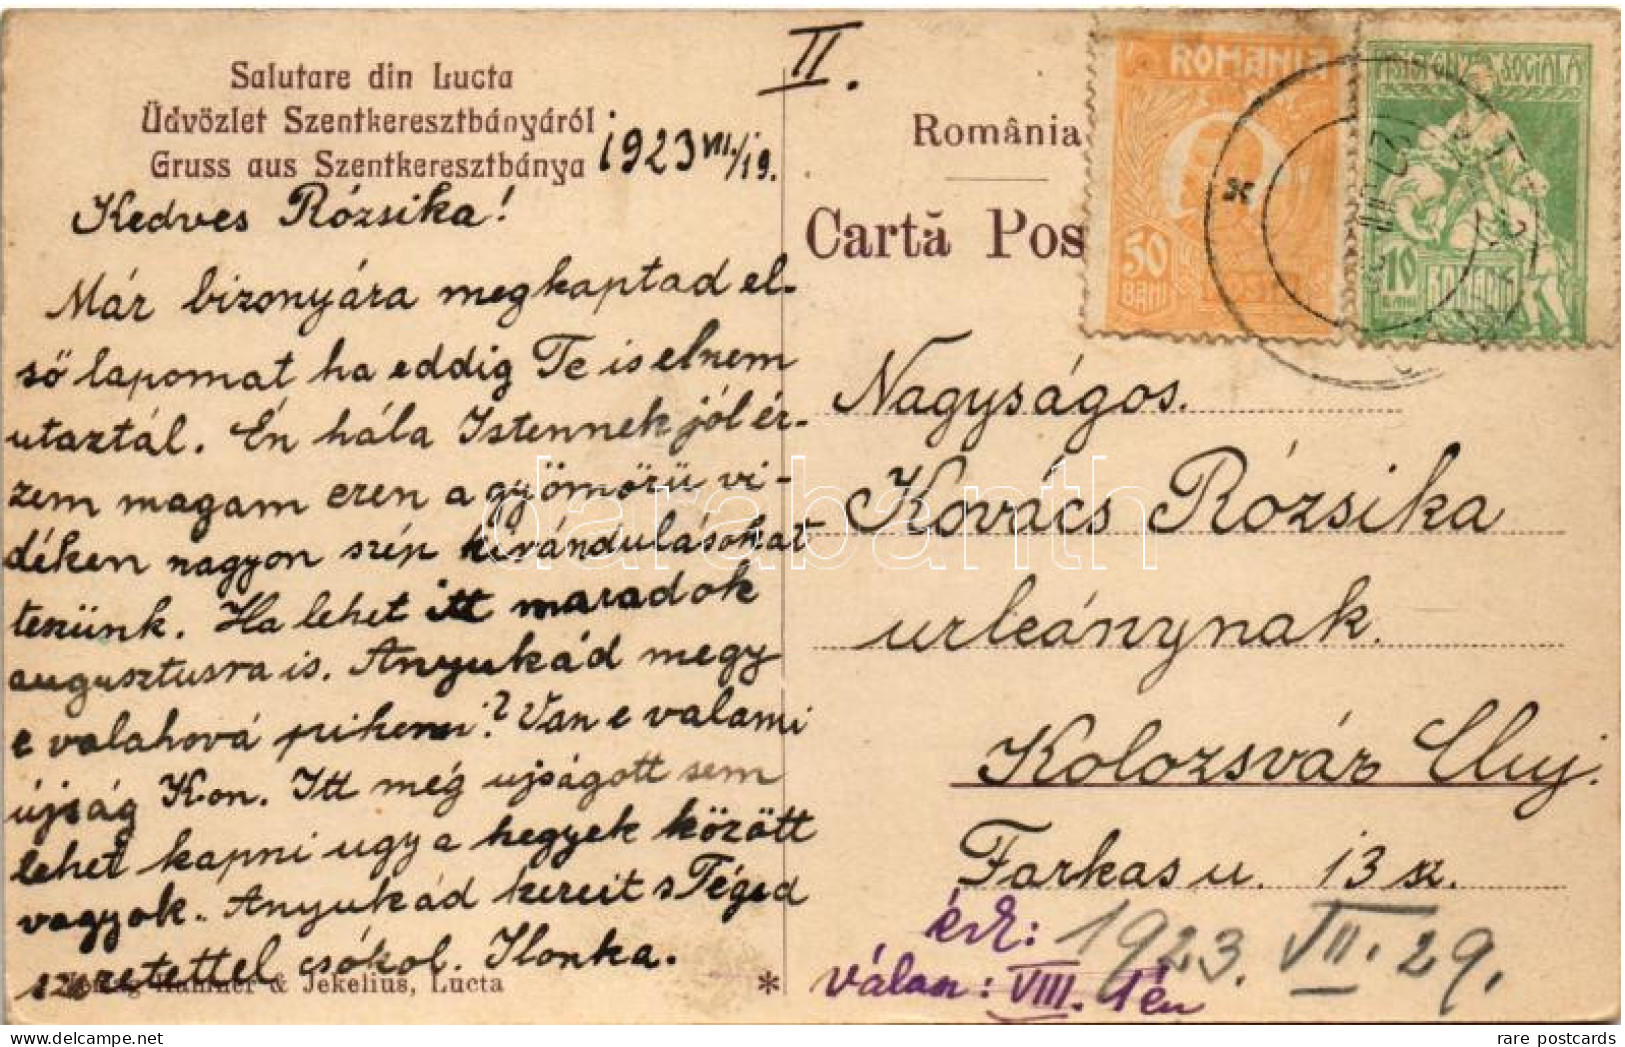 Salutare din Lucta
Üdvözlet Szentkeresztbányáról
Gruss aus Szentkeresztbánya
1923 VII./19.
II.
Kedves Rózsika!
Már bizonyára megkaptad el-
ső lapomat ha eddig Te is elnem
utaztál. Én hála Istennek jól ér-
zem magam ezen a gyömörü vi-
déken nagyon szép kirándulásokat
teszünk. Ha lehet itt maradok
augusztusra is. Anyukád megy
e valahová pihenni? Van e valami
újság Kon. Itt még ujságott sem
lehet kapni ugy a hegyek között
vagyok. Anyukád kereit s Téged
szeretettel csókol. Ilonka.
& Jekelius, Lucta
*
România
Cartă Pos
ROMANIA
50
BANI
ASISTENȚA SOCIALA
10
BANI
ROMANIA
Nagyságos.
Kovács Rózsika
urleánynak.
Kolozsvár Cluj.
Farkas u. 13 sz.
érk: 1923. VII. 29.
válasz: VIII. 1én
darabanth
delcampe.net
rare postcards